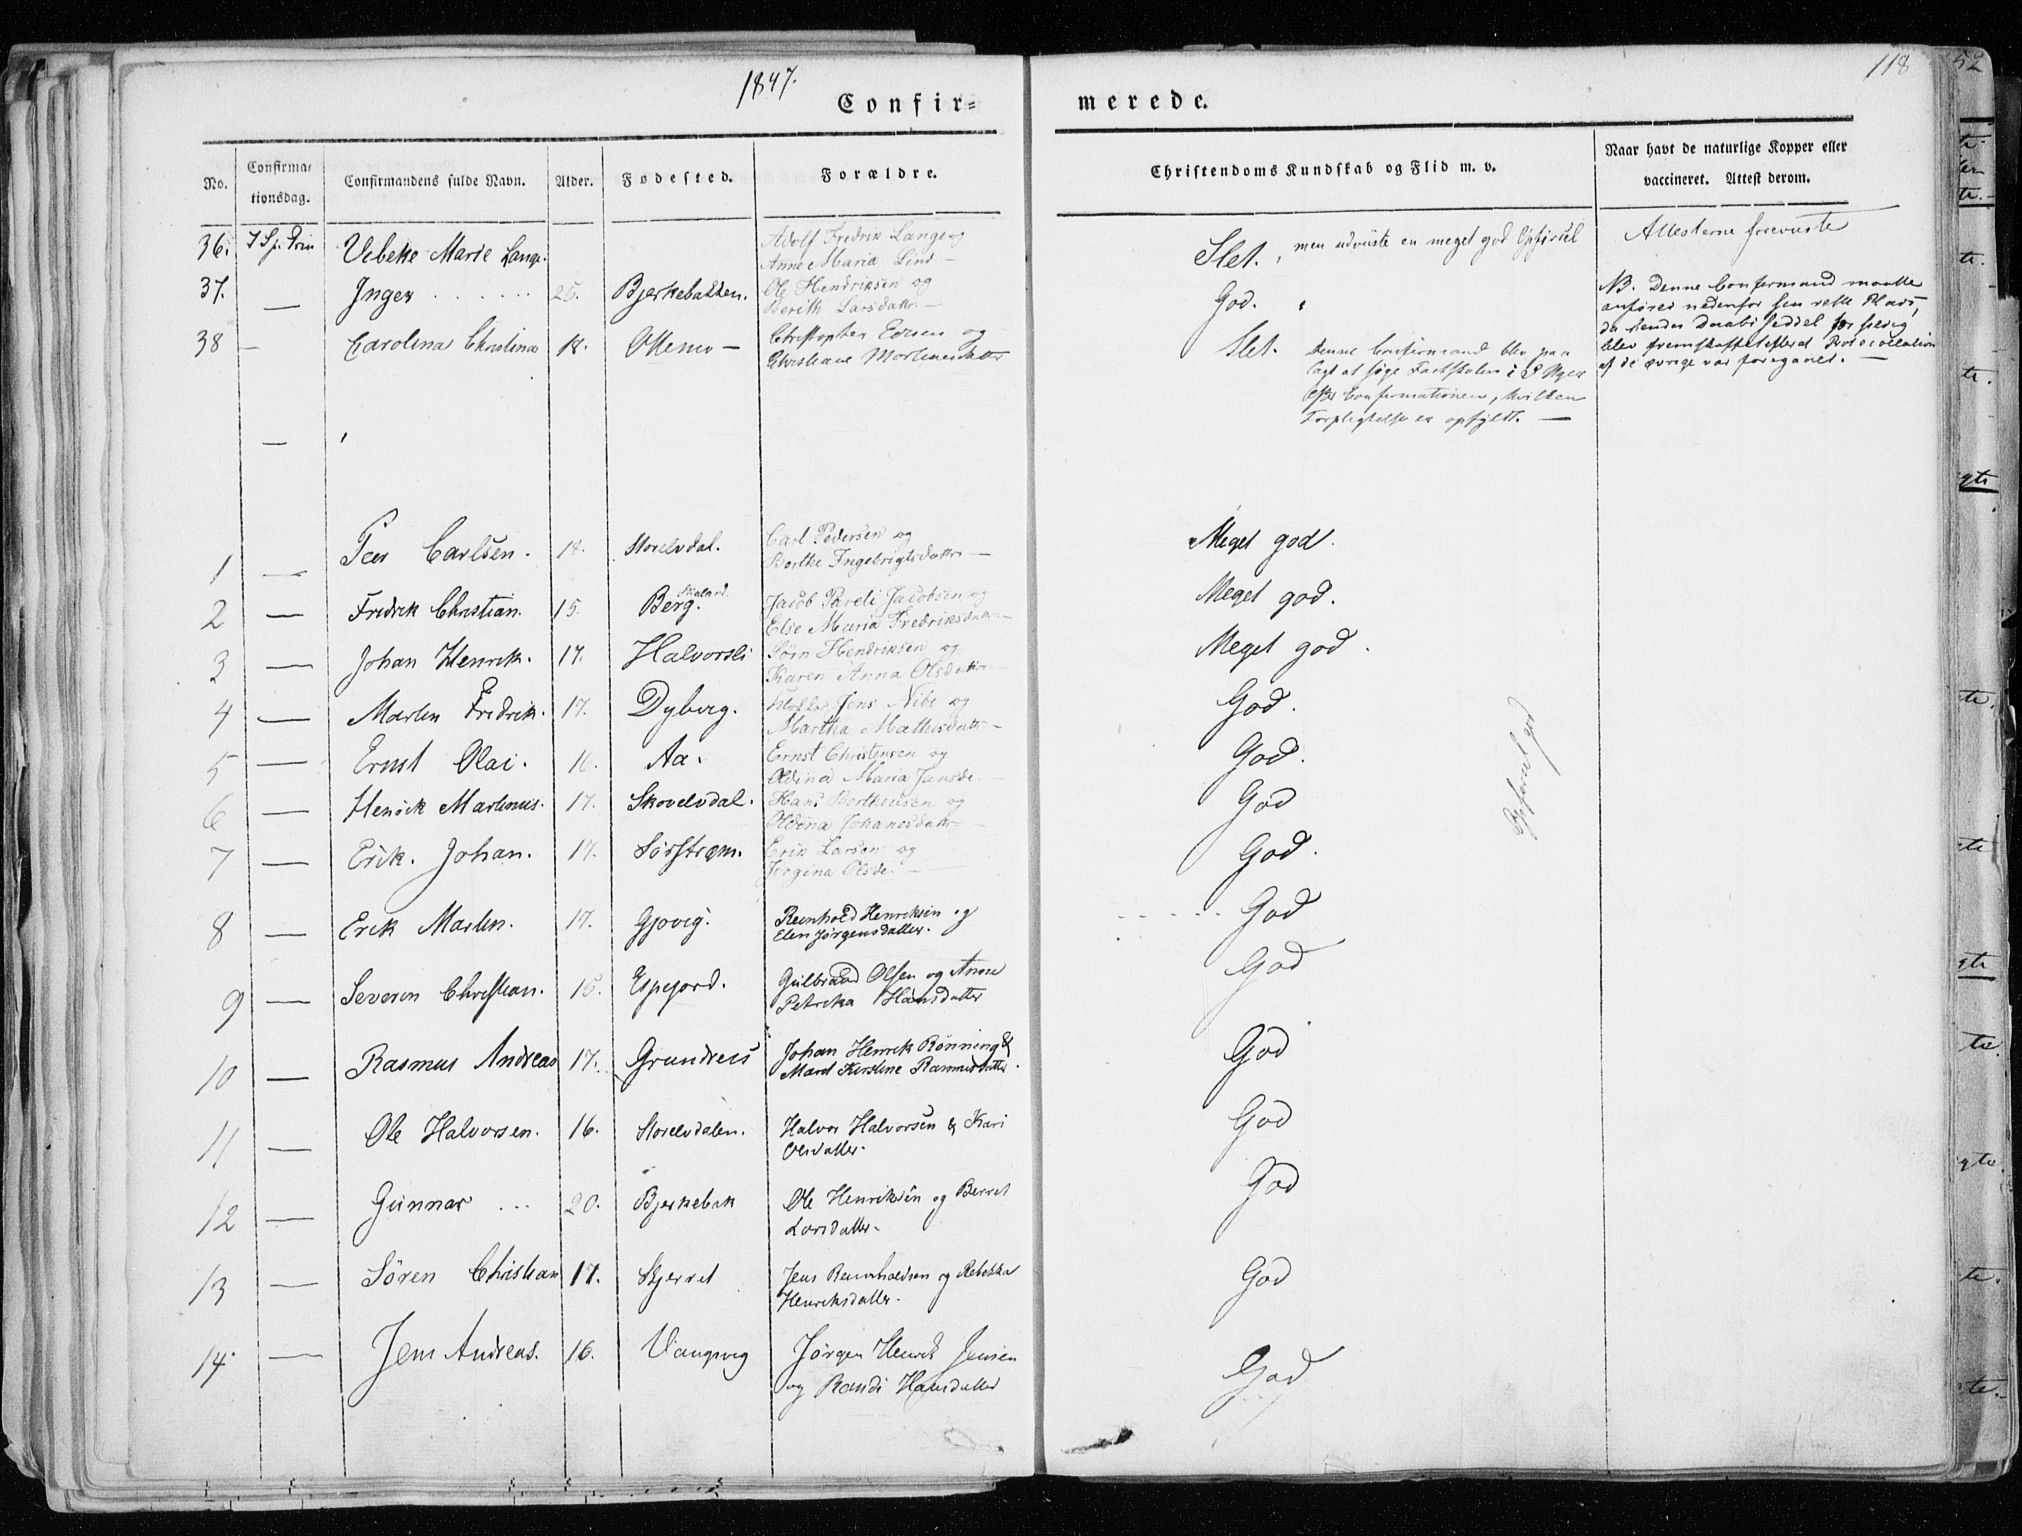 1847.
118
Confir=
merede.
No.
Confirma-
tionsdag.
Confirmandens fulde Navn.
Alder.
Fødested.
Forældre.
Christendoms Kundskab og Flid m. v.
Naar havt de naturlige Kopper eller
vaccineret. Attest derom.
36. Vebeke Marie Lange. Adolf Fredrik Lange og
Anne Maria Lind — Slet. men udviiste en meget god Opførsel Attesterne foreviiste
37. — Inger ...... 25. Bjerkebakken. Ole Hendriksen og
Berith Larsdattr. — God.
38 — Carolina Christina 18. Ottemo — Christopher Edisen og
Christiane Mortensdatter Slet.
Denne Confirmand blev paa-
lagt at søge Fastskolen i 8 Uger
efter Confirmationen, hvilken
Forpligtelse er opfyldt. —
NB. Denne Confirmand maatte
anføres nedenfor sin rette Plads,
da hendes Daabsseddel for sildig
blev fremskaffet efterat
af de øvrige var foregaaet. —
1 — Peer Carlsen. 18. Storelvdal. Carl Pedersen og
Berthe Ingebrigtsdattr — Meget god.
2 — Fredrik Christian. 15. Berg. Skaland. Jacob Pareli Jacobsen og
Else Maria Fredriksdattr — Meget god.
3 — Johan Henrik. 17. Halvorsli Sørn Hendriksen og
Karen Anna Olsdattr — Meget god.
4 — Marten Fredrik. 17. Dybvig. Jens Nibe og
Martha Mathisdattr — God.
5 — Ernst Olai. 16. Aa. Ernst Christensen og
Oldina Maria Jansdr. — God.
6 — Henrik Martinus. 17. Skovelvdal. Hans Bertheusen og
Oldina Johanesdattr — God
7 — Erik. Johan. 17. Sørstrøm. Erik Larsen og
Jørgina Olsdr. — God.
8 — Erik Marten. 17. Gjovig. Reinhold Henriksen og
Elen Jørgensdatter. God
9 — Severin Christian. 15. Espejord. Gulbrand Olsen og Anne
Petrika Hansdatter God
10 — Rasmus Andreas 17. Grundreis Johan Henrik Rønning &
Maret Kirstine Rasmusdatter. God
11 — Ole Halvorsen. 16. Storelvdalen. Halvor Halvorsen & Kari
Olsdatter. God
12 — Gunnar ... 20. Bjerkebak Ole Henriksen og Berret
Larsdatter. God
13 — Søren Christian 17. Skjerret Jens Reinholdsen og Rebekka
Henriksdatter. God
14. — Jens Andreas. 16. Vangsvig Jørgen Henrik Jensen
og Randi Hansdatter God
Opførsel god